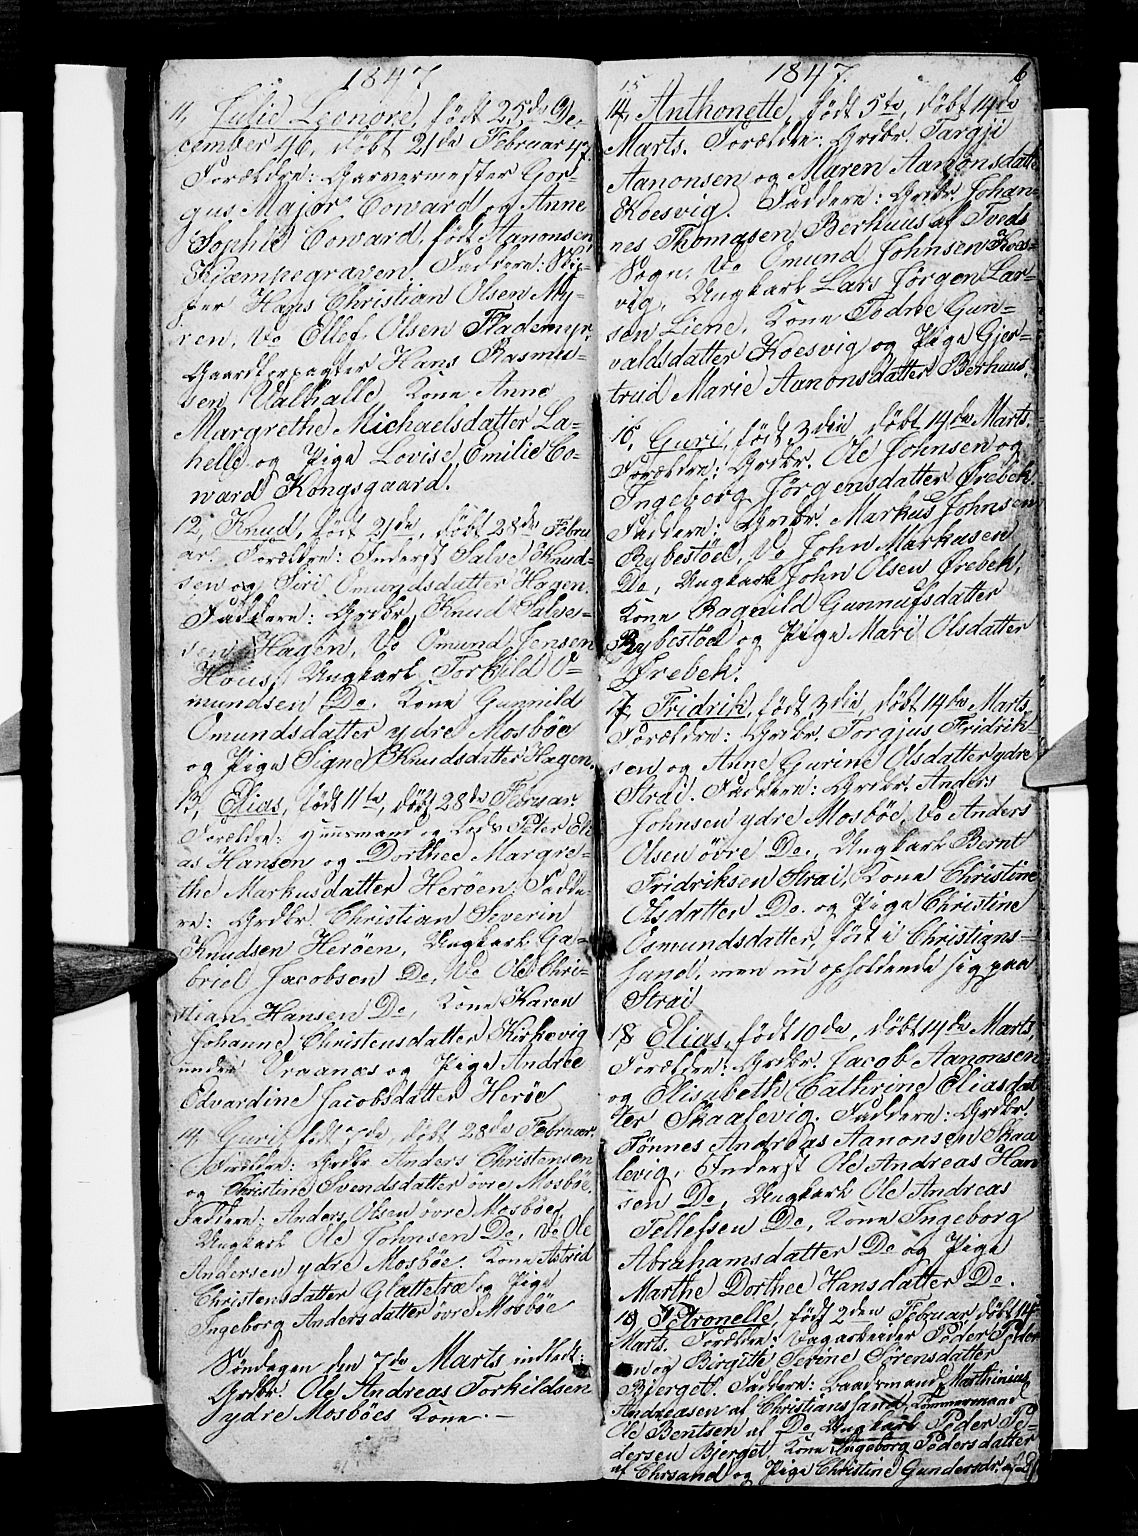 1847
11, Julie Leonore, født 25de De-
cember 46, døbt 21de Februar 47.
Forældre: Garvermester Gor-
gus Major Coward og Anne
Sophie Coward, født Aanonsen
Kjæmpegraven. Faddere: Skip-
per Hans Christian Olsen My-
ren, Do Ellef Olsen Flademyr,
Gaardforpagter Hans Rasmu-
sen Valhalle, Kone Anne
Margrethe Michaelsdatter La-
helle og Pige Lovise Emilie Co-
ward Kongsgaard.
12, Knud, født 21de, døbt 28de Febru-
ar. Forældre: Inderst Salve Knud-
sen og Siri Omundsdatter Hagen.
Faddere: Grdbr. Knud Salves-
sen Hagen, Do Omund Jensen
Hous, Ungkarl Torkild O-
mundsen Do. Kone Gunnild
Omundsdatter ydre Mosbøe
og Pige Signe Knudsdatter Hagen.
13, Elias, født 11te, døbt 28de Februar.
Forældre: Huusmand og Lods Peter Eli-
as Hansen og Dorthee Margre-
the Markusdatter Herøen. Fadde-
re: Grdbr Christian Severin
Knudsen Herøen, Ungkarl Ga-
briel Jacobsen Do, Do Ole Chri-
stian Hansen Do, Kone Karen
Johanne Christensdatter Kirkevig
under Vraanæs og Pige Andree
Edvardine Jacobsdatter Herøe
14, Guri, født 7de, døbt 28de Februar.
Forældre: Grdbr Anders Christensen
og Christine Svendsdatter øvre Mosbøe.
Faddere: Anders Olsen øvre Mosbøe,
Ungkarl Ole Johnsen Do, Do Ole
Andersen ydre Mosbøe. Kone Astrid
Christensdatter Glattetræ og Pige
Ingeborg Andersdatter øvre Mosbøe
Søndagen den 7de Marts indledt:
Grdbr. Ole Andreas Torkildsen
ydre Mosbøes Kone. —
1847. 6
15
14, Anthonette, født 5te, døbt 14de
Marts. Forældre: Grdbr. Targje
Aanonsen og Maren Aanonsdatter
Koesvig. Faddere: Grdbr. Johan-
nes Thomasen Berhuus af Tveds
Sogn, Do Omund Johnsen Koes-
vig, Ungkarl Lars Jørgen Lar-
sen Liene, Kone Todne Gun-
valdsdatter Koesvig og Pige Gjer-
trud Marie Aanonsdatter Berhuus.
16, Guri, født 3die, døbt 14de Marts.
Forældre: Grdbr. Ole Johnsen og
Ingeborg Jørgensdatter Ørebek.
Faddere: Grdbr. Markus Johnsen
Rybestøel, Do John Markusen
Do, Ungkarl John Olsen Ørebek,
Kone Ragnild Gunnufsdatter
Rybestøel og Pige Mari Olsdatter
Ørebek.
17, Fridrik, født 3die, døbt 14de Marts.
Forældre: Grdbr. Torgjus Fridrik-
sen og Anne Gurine Olsdatter ydre
Strai. Faddere: Grdbr. Anders
Johnsen ydre Mosbøe, Do Anders
Olsen øvre Do., Ungkarl Bernt
Fridriksen Strai, Kone Christine
Olsdatter Do. og Pige Christine
Osmundsdatter, født i Christians-
sand, men nu opholdende sig paa
Strai
18, Elias, født 10de, døbt 14de Marts,
Forældre: Grdbr. Jacob Aanonsen
og Elisabeth Cathrine Eliasdat-
ter Skaalevig. Faddere: Grdbr.
Tønnes Andreas Aanonsen Skaa-
levig, Inderst Ole Andreas Han-
sen Do, Ungkarl Ole Andreas
Tellefsen Do, Kone Ingeborg
Abrahamsdatter Do og Pige
Marthe Dorthee Hansdatter Do.
19, Petronelle, født 2den Februar, døbt 14de
Marts. Forældre: Peder Peder-
sen og Birgitte Serine Sørensdatter
Bjerget. Faddere: Baadsmand Marthinius
Andreasen af Christianssand, Tømmermand
Ole Bentsen af Do, Ungkarl Peder Pe-
dersen Bjerget, Kone Ingeborg Pedersdatter
af Chrsand og Pige Christine Gundersdr. af Do